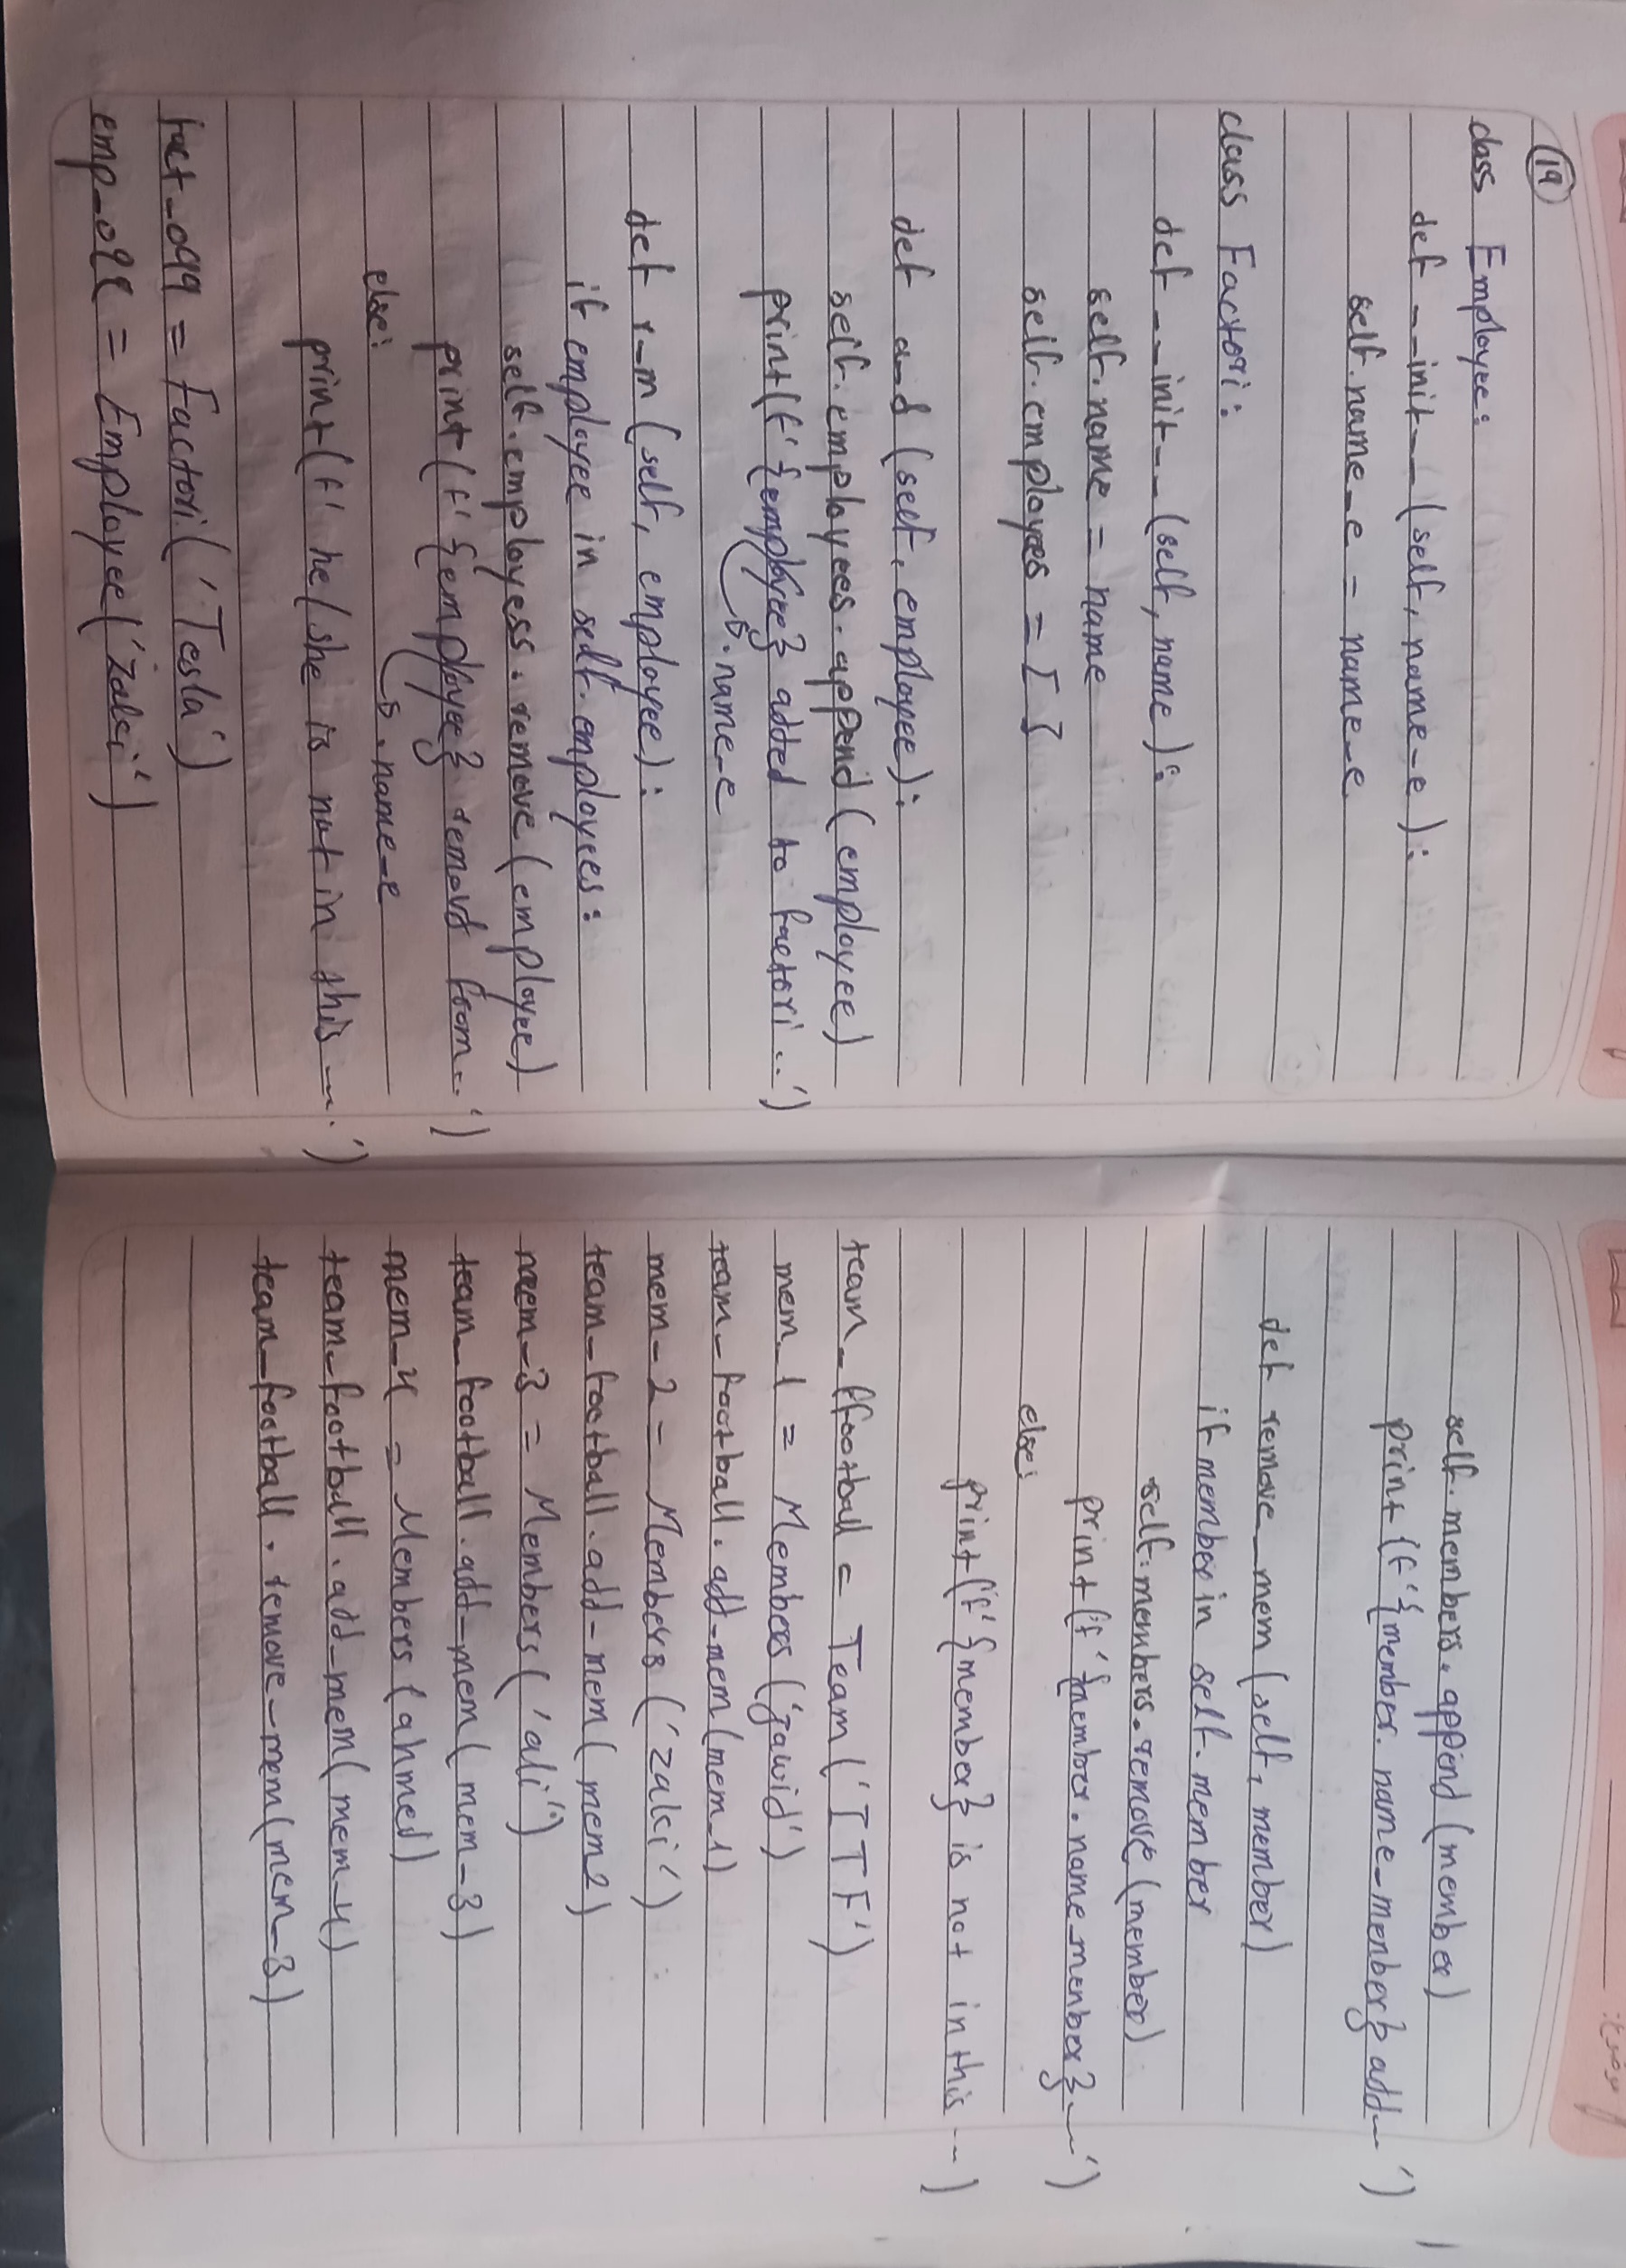 19
class Employee:
def __init__(self, name_e):
self.name_e = name_e
class Factori:
def __init__(self, name):
self.name = name
self.employees = []
def a_d (self, employee):
self.employees.append(employee)
print(f'{employee} added to factori..')
.name_e
def r_m (self, employee):
if employee in self.employees:
self.employess.remove(employee)
print(f'{employee} remove from..')
.name_e
else:
print(f' he/she is not in this ~.')
fact_099 = Factori('Tesla')
emp_099 = Employee('zaki')
موضوع:
self.members.append(member)
print(f'{member.name_member} add~')
def remove_mem (self, member)
if member in self.member
self.members.remove(member)
print(f'{member.name_member}~')
else:
print(f'{member} is not in this --)
team_ffootball = Team('ITF')
mem_1 = Members('jawid')
team_football.add_mem(mem_1)
mem_2 = Members('zaki')
team_football.add_mem(mem2)
mem_3 = Members('ali')
team_football.add_mem(mem_3)
mem_4 = Members(ahmed)
team_football.add_mem(mem_4)
team_football.remove_mem(mem_3)